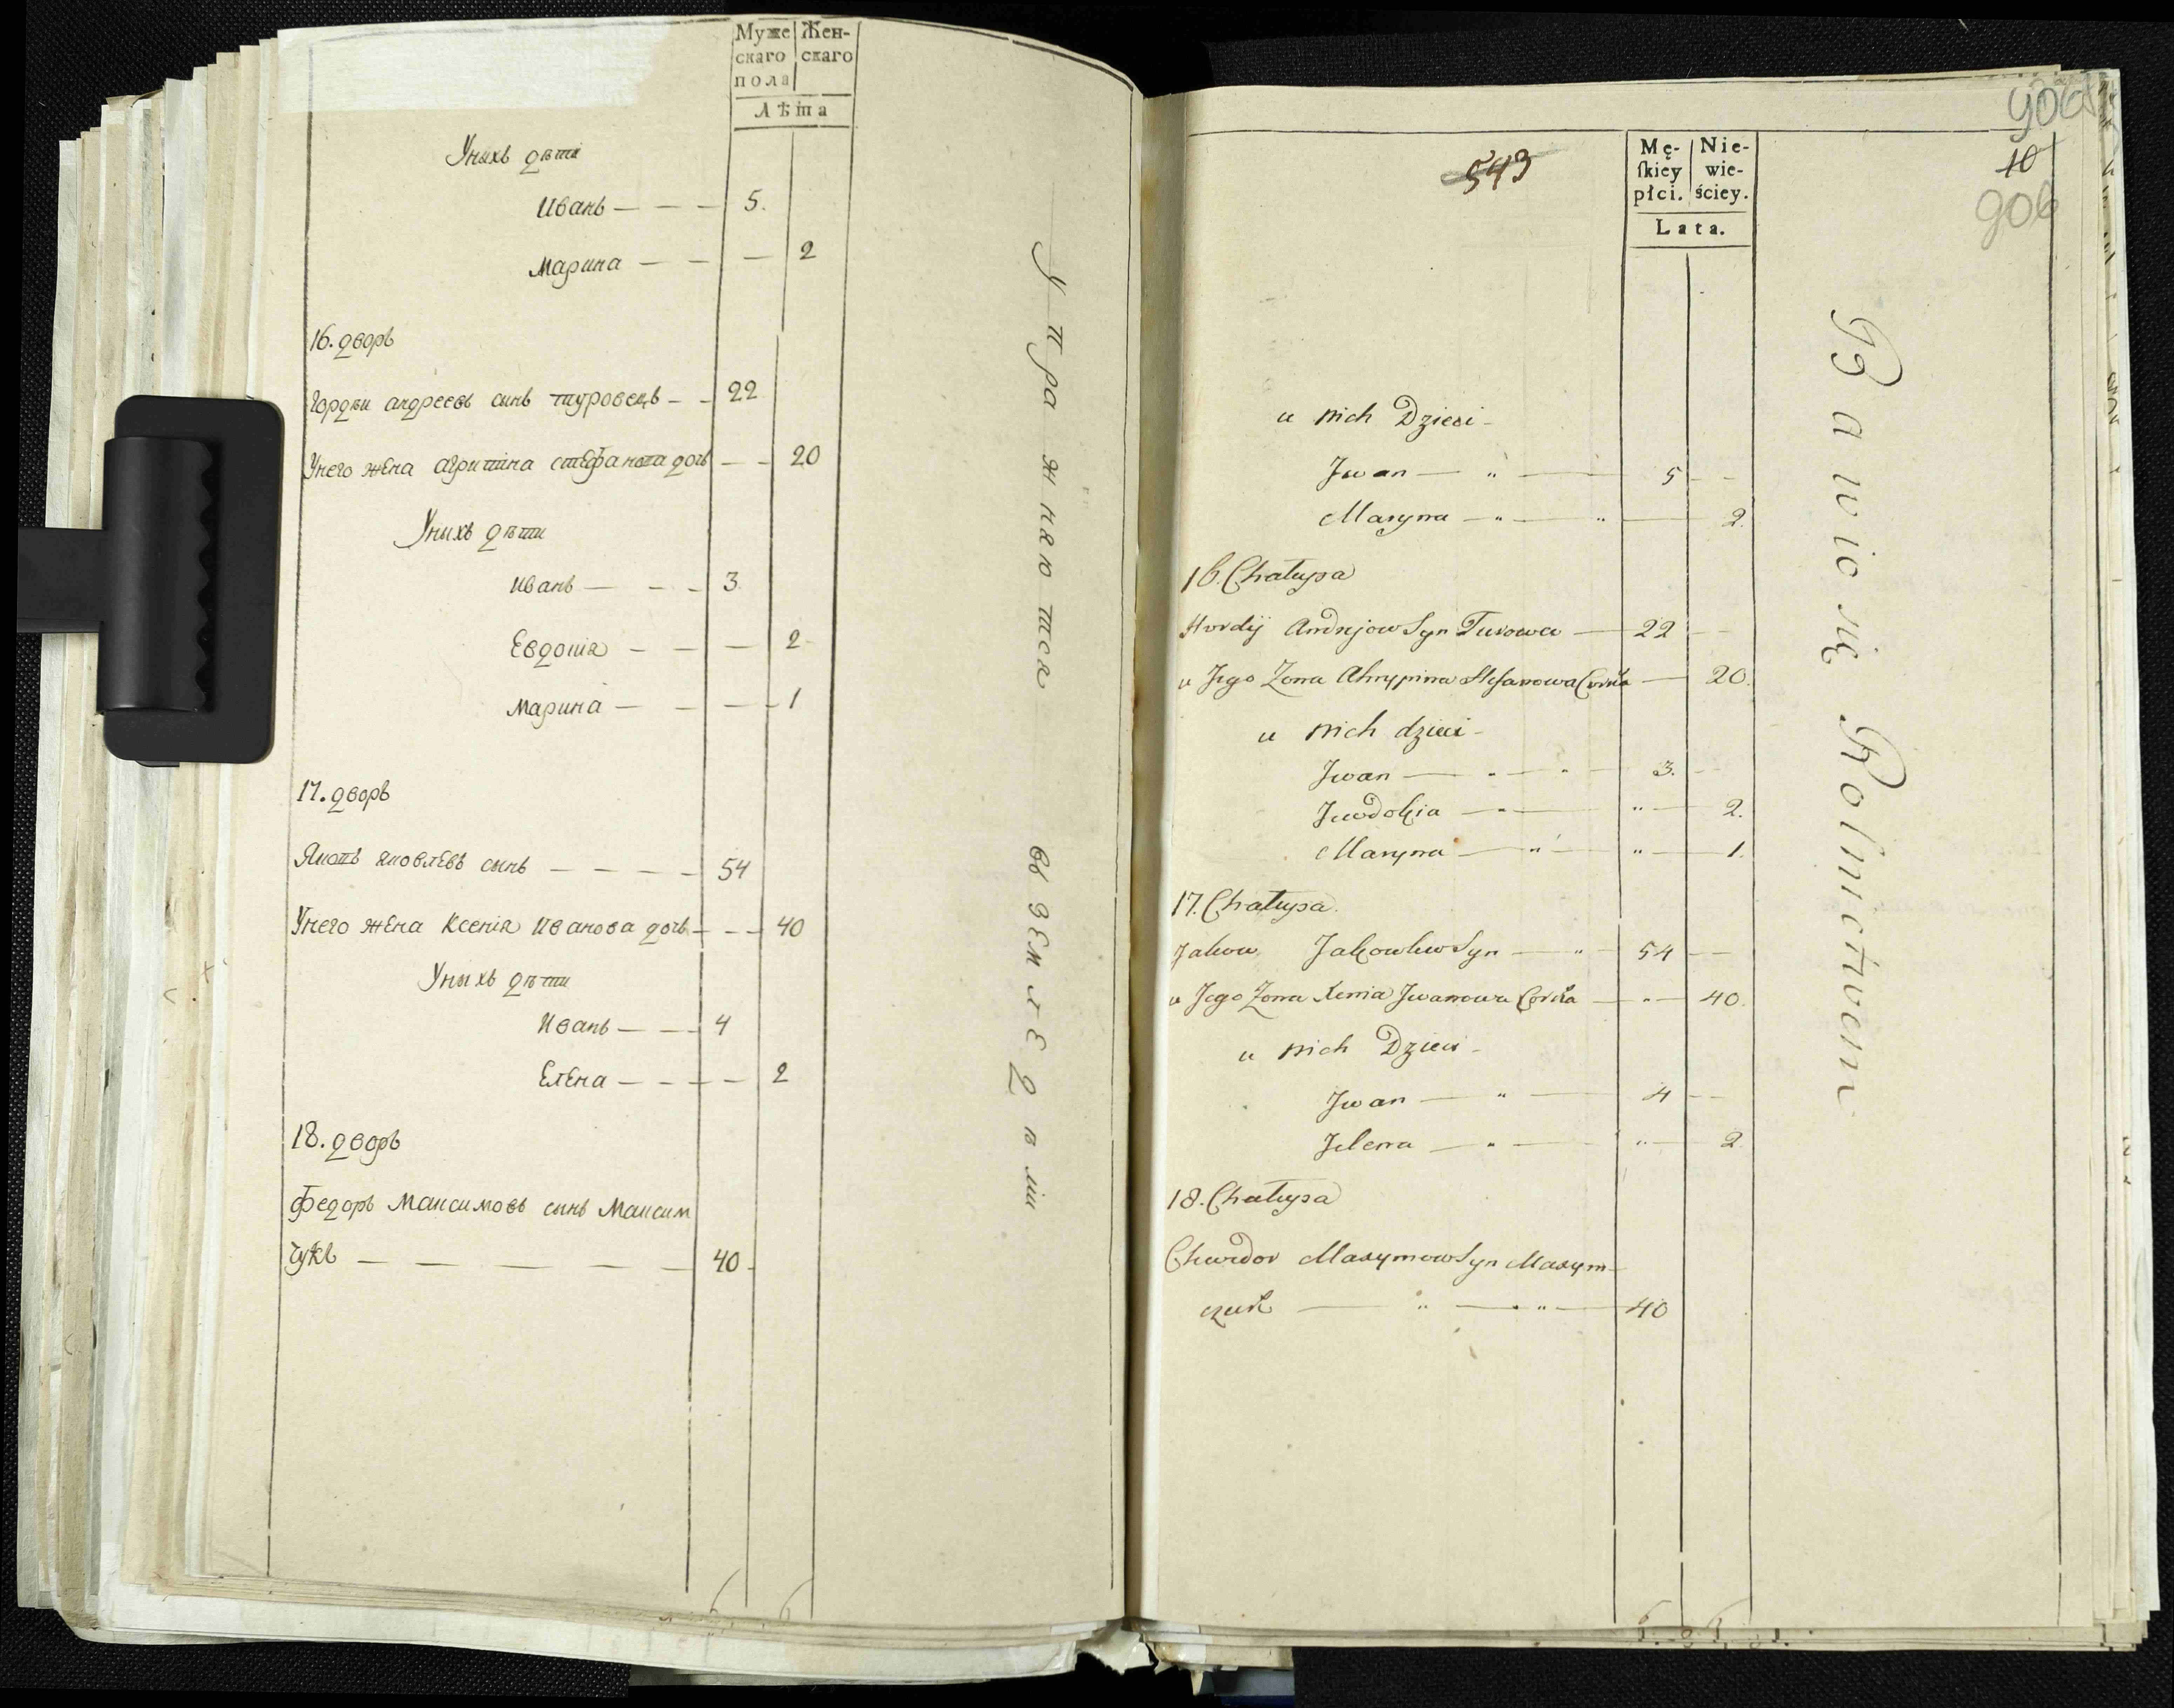 Муже
скаго
пола
Жен-
скаго
Лѣта
Уныхъ дѣти
Иванъ — — — 5.
Марина — — — 2
16. дворъ
Гордѣи андреевъ синъ туровецъ — — 22
Унего жена агрипина стефанова дочь — — 20
Уныхъ дѣти
иванъ — — — 3.
Евдокія — — — 2
марина — — — 1
17. дворъ
Яковъ яковлевъ сынъ — — — — 54
Унего жена Ксенія Иванова дочь — — — 40
Уныхъ дѣти
Иванъ — — — 4
Елена — — — — 2
18. дворъ
Федоръ Максимовъ сынъ Максим
чукъ — — — — — — 40
Упражняются въ земледѣліи
543
906
10
906
Mę-
ſkiey
płci.
Nie-
wie-
ściey.
Lata.
u nich Dzieci -
Jwan — „ — 5 - -
Maryna — „ — „ — 2.
16. Chałupa
Hordij Andrejow Syn Turowec — 22 - -
u Jego Zona Ahrypina Stefanowa Corka — 20.
u nich dzieci -
Jwan — „ — „ — 3. - -
Jewdokia — „ — „ — 2.
Maryna — „ — „ — 1.
17. Chałupa.
Jakow Jakowlew Syn — „ — 54 - -
u Jego Zona Xenia Jwanowa Corka — „ — 40.
u nich Dzieci -
Jwan — „ — 4 - -
Jelena — „ — „ — 2
18. Chałupa
Chwedor Maxymow Syn Maxym-
czuk — „ — „ — 40
Bawio się Rolnictwem